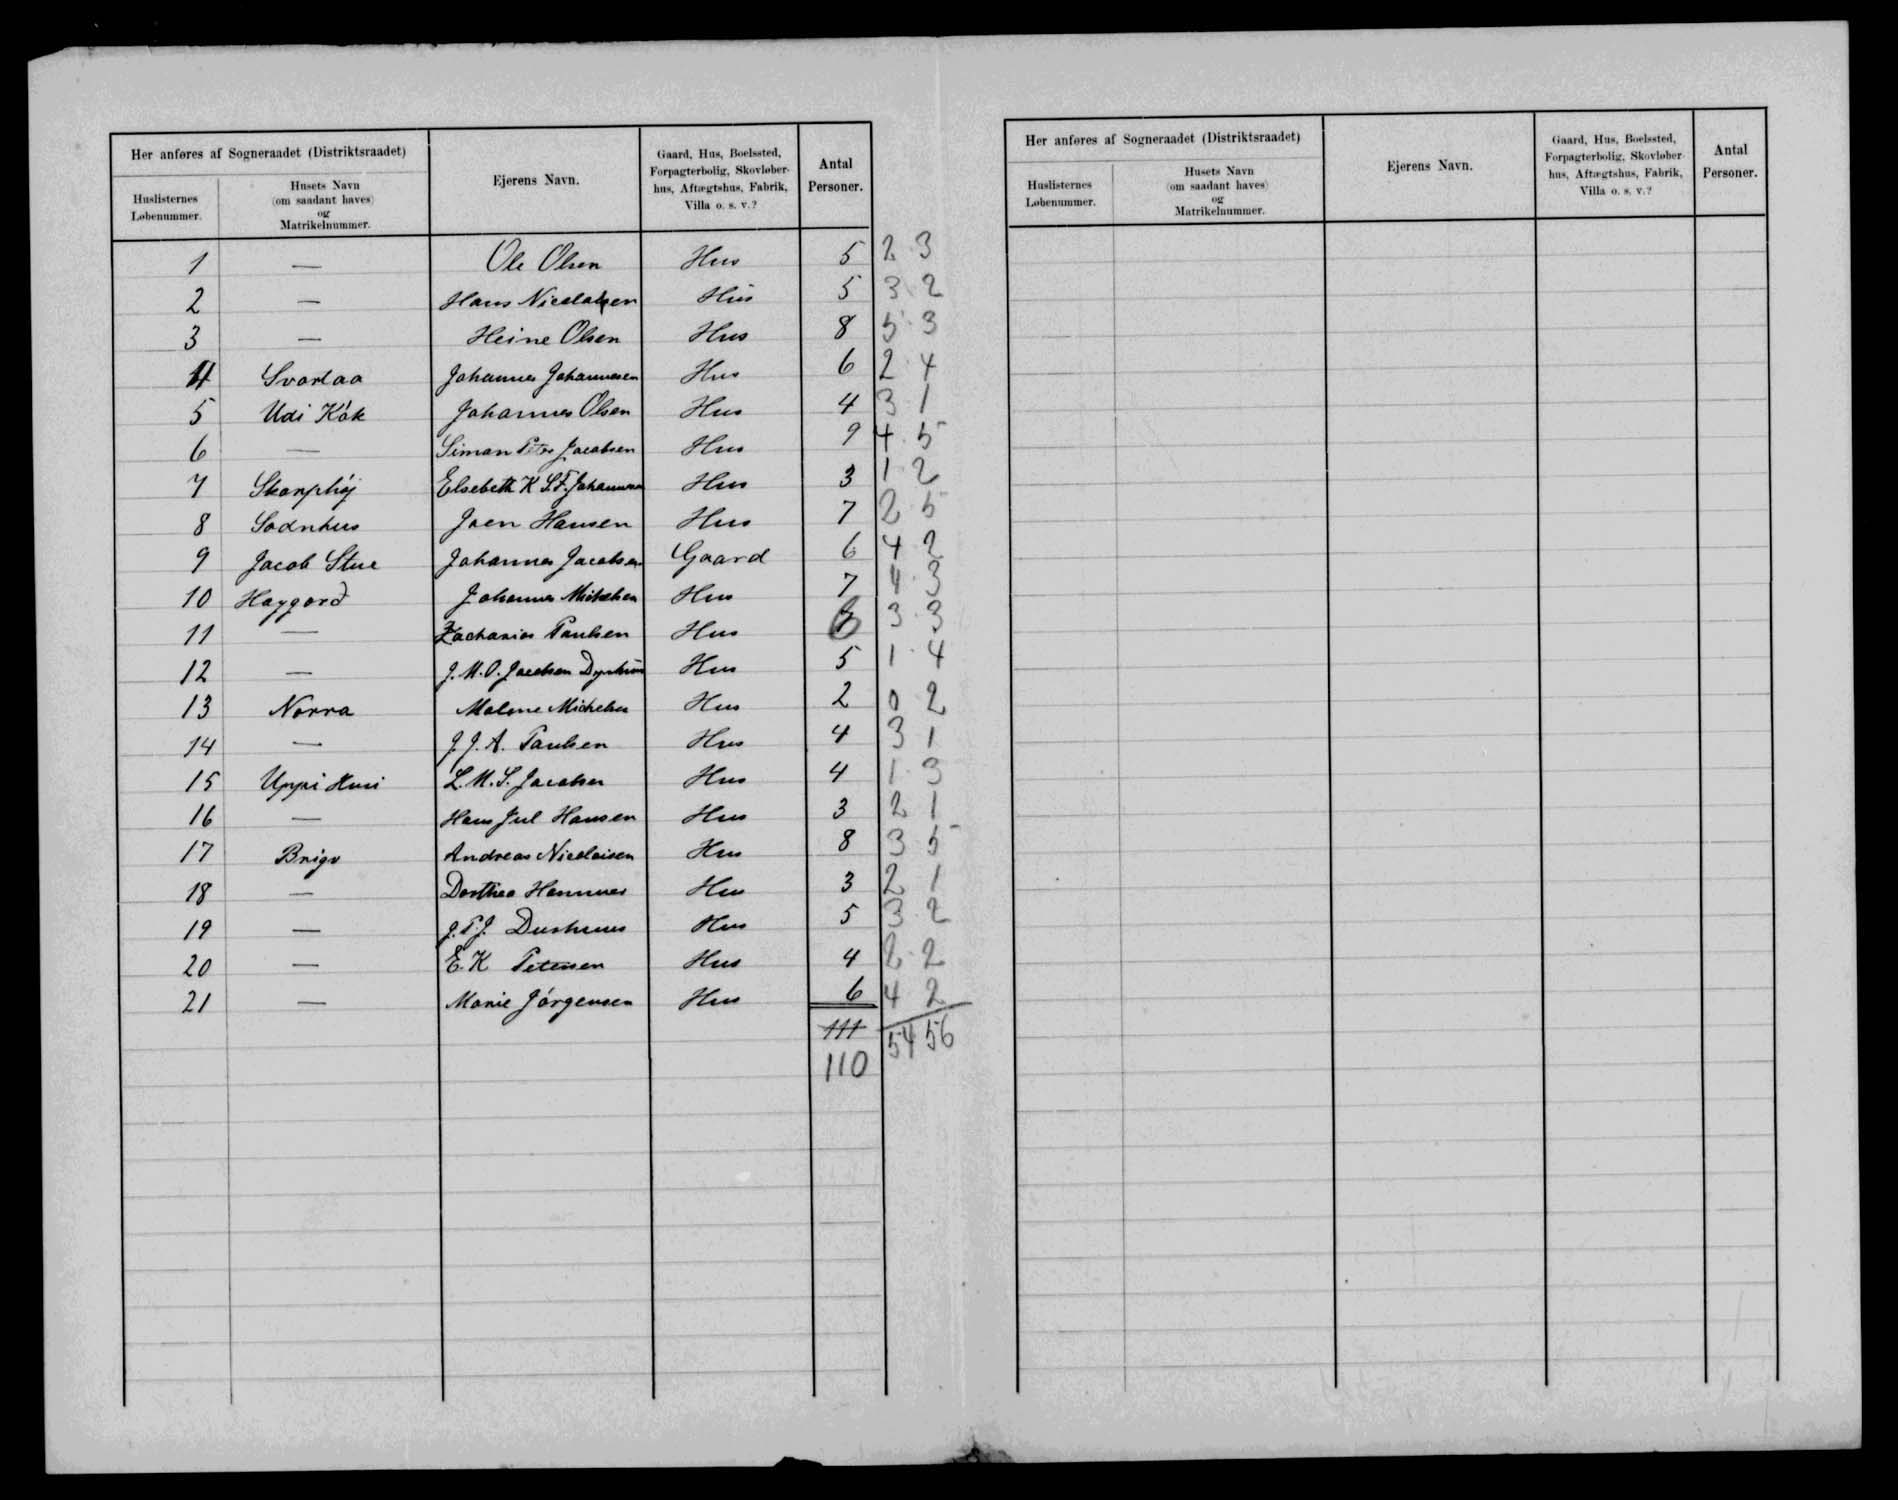 Her anføres af Sogneraadet (Distriktsraadet)
Huslisternes Løbenummer.
Husets Navn (om saadant haves) og Matrikelnummer.
Ejerens Navn.
Gaard, Hus, Boelssted, Forpagterbolig, Skovløberhus, Aftægtshus, Fabrik, Villa o. s. v.?
Antal Personer.
1 — Ole Olsen Hus 5 2 3
2 — Hans Nicolaisen Hus 5 3 2
3 — Heine Olsen Hus 8 5 3
4 Svartaa Johannes Johannesen Hus 6 2 4
5 Udi Kók Johannes Olsen Hus 4 3 1
6 — Simon Peter Jacobsen Hus 9 4 5
7 Skarphøj Elsebeth K S.F. Johannesen Hus 3 1 2
8 Hus 7 2 5
Joen Hansen
9 Jacob Stue Johannes Jacobsen Gaard 6 4 2
10 Haygard Johannes Michelsen Hus 7 4 3
11 — Zacharias Paulsen Hus 6 3 3
12 — J. M. O. Jacobsen Hus 5 1 4
13 Norra Malene Michelsen Hus 2 0 2
14 — J. J. A. Paulsen Hus 4 3 1
15 Uppi Husi L. M. S. Jacobsen Hus 4 1 3
16 — Hans Jul Hansen Hus 3 2 1
17 Brigv Andreas Nicolaisen Hus 8 3 5
18 — Dorthea Hammer Hus 3 2 1
19 — J. P. J. Durhuus Hus 5 3 2
20 — E. K Petersen Hus 4 2 2
21 — Marie Jórgensen Hus 6 4 2
111 54 56
110
Her anføres af Sogneraadet (Distriktsraadet)
Huslisternes Løbenummer.
Husets Navn (om saadant haves) og Matrikelnummer.
Ejerens Navn.
Gaard, Hus, Boelssted, Forpagterbolig, Skovløberhus, Aftægtshus, Fabrik, Villa o. s. v.?
Antal Personer.